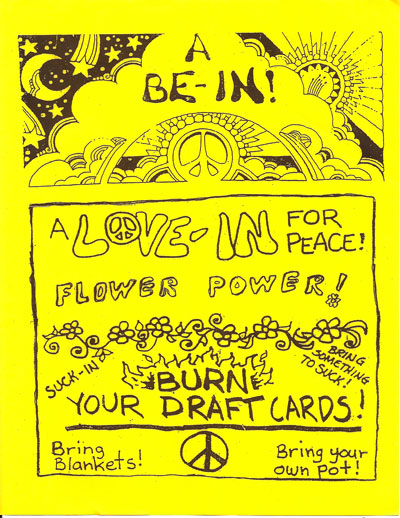 A
BE-IN!
A LOVE-IN FOR
PEACE!
FLOWER POWER!
SUCK-IN
BRING
SOMETHING
TO SUCK!
BURN
YOUR DRAFT CARDS!
Bring
Blankets!
Bring your
own pot!